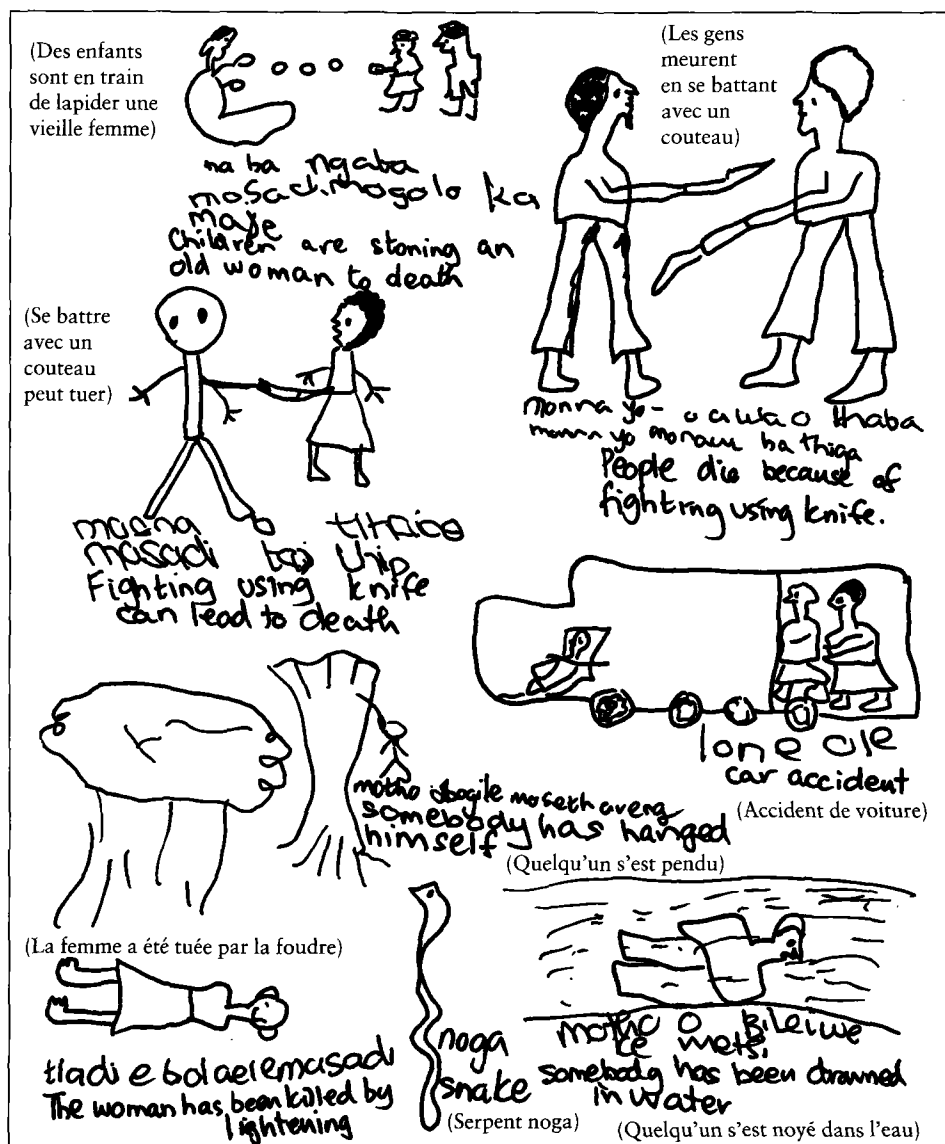 (Des enfants
sont en train
de lapider une
vieille femme)
na ba ngaba
mosadimogolo ka
maje
Children are stoning an
old woman to death
(Les gens
meurent
en se battant
avec un
couteau)
monna yo - o a o thaba
monna yo monawe ba thiga
People die because of
fighting using knife.
(Se battre
avec un
couteau
peut tuer)
monna
masadi thip
Fighting using knife
can lead to death
lone ole
car accident
(Accident de voiture)
motho moseth areng
somebody has hanged
himself
(Quelqu'un s'est pendu)
(La femme a été tuée par la foudre)
tladi e bolaelemasadi
The woman has been killed by
lightening
noga
snake
(Serpent noga)
motho o
ke metsi
somebody has been drowned
in water
(Quelqu'un s'est noyé dans l'eau)